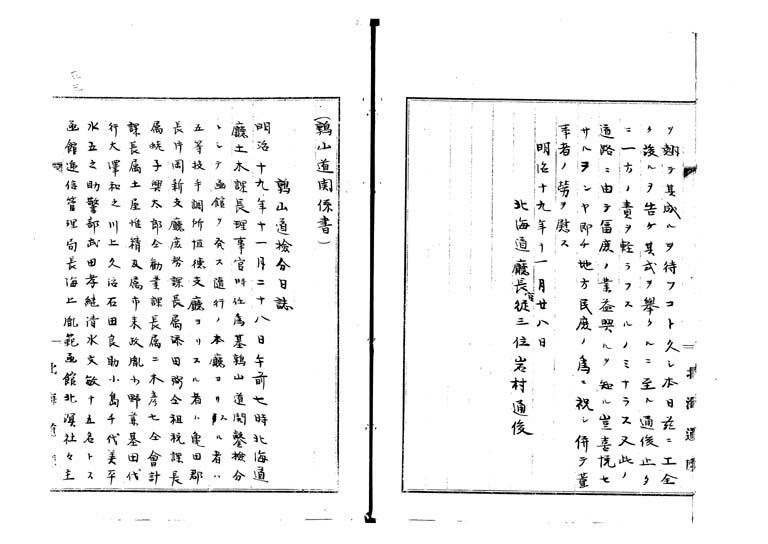 ヲ翹テ其成ルヲ待フコト久シ本日茲ニ工全
ク竣ルヲ告ゲ其式ヲ舉クルニ至ル通俊止タ
ニ一方ノ責ヲ軽ラフスルノミナラス又此ノ
道路ニ由テ富庶ノ業益興ルヲ知ル豈喜悦セ
サルヲンヤ即チ地方民庶ノ為ニ祝シ併テ董
事者ノ労ヲ慰ス
明治十九年十一月廿八日
北海道廳長官従三位岩村通俊
北海道庁
(鶉山道関係書)
鶉山道検分日誌
明治十九年十一月二十八日午前七時北海道
廳土木課長理事官時任為基鶉山道開鑿検分
トシテ函館ヲ発ス随行ノ本廳ヨリスル者ハ
五等技手調所恒徳支廳ヨリスル者ハ亀田郡
長片岡新支廳庶務課長属添田弼仝租税課長
属蛯子興太郎仝勧業課長属二木彦七仝会計
課長属土屋惟精及属市来政胤小野寡基田代
行大澤松之川上久治石田良助小島千代美平
水五之助警部武田孝継清水文敏十五名トス
函館逓信管理局長海上胤範函館北溟社々主